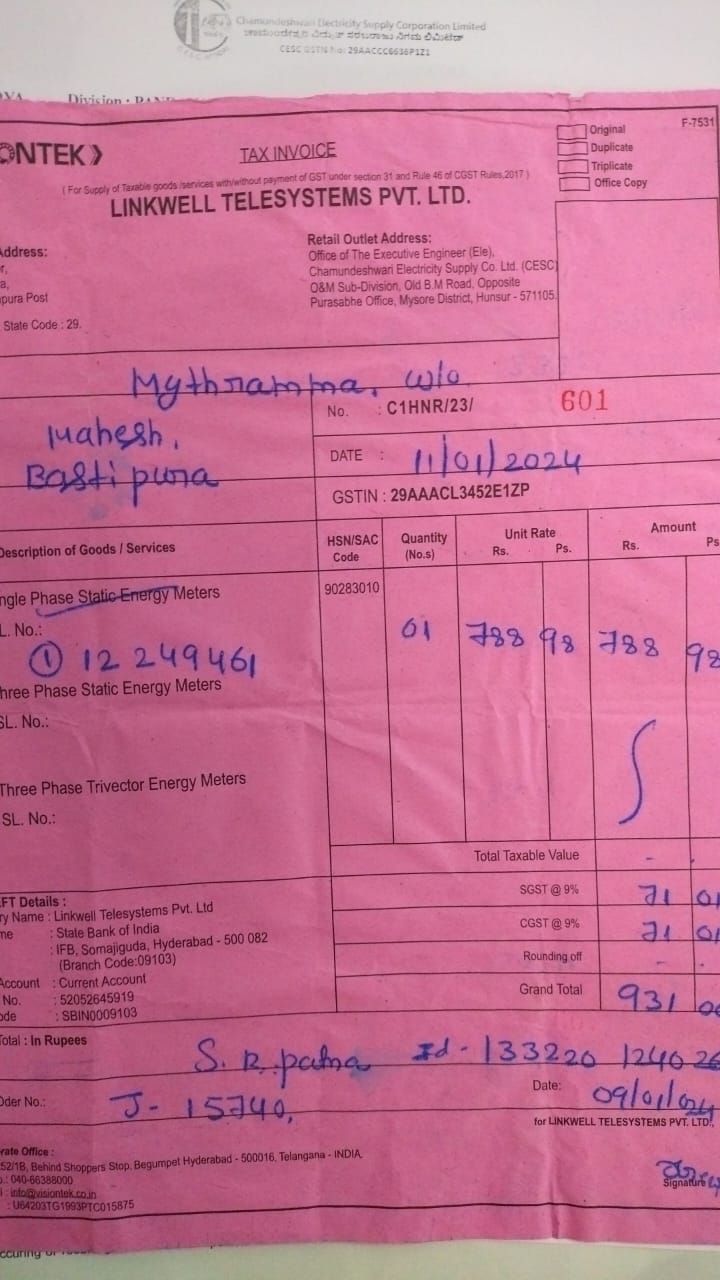 Chamundeshwari Electricity Supply Corporation Limited
CESC GSTN No: 29AACCC6636P1Z1
Division :
ONTEK
TAX INVOICE
Original
Duplicate
Triplicate
Office Copy
F-7531
( For Supply of Taxable goods /services with/without payment of GST under section 31 and Rule 46 of CGST Rules,2017 )
LINKWELL TELESYSTEMS PVT. LTD.
Address:
Retail Outlet Address:
Office of The Executive Engineer (Ele),
Chamundeshwari Electricity Supply Co. Ltd. (CESC)
O&M Sub-Division, Old B.M Road, Opposite
Purasabhe Office, Mysore District, Hunsur - 571105.
pura Post
State Code : 29.
Mythramma, w/o
Mahesh,
Bastipura
No. : C1HNR/23/ 601
DATE : 11/01/2024
GSTIN : 29AAACL3452E1ZP
Description of Goods / Services
HSN/SAC Code
Quantity (No.s)
Unit Rate Rs. Ps.
Amount Rs. Ps
ngle Phase Static Energy Meters
90283010
01 788 98 788 98
L. No.:
① 12 249461
hree Phase Static Energy Meters
SL. No.:
Three Phase Trivector Energy Meters
SL. No.:
Total Taxable Value -
SGST @ 9% 71 01
CGST @ 9% 71 01
Rounding off -
Grand Total 931 00
FT Details :
ry Name : Linkwell Telesystems Pvt. Ltd
me : State Bank of India
: IFB, Somajiguda, Hyderabad - 500 082
(Branch Code:09103)
Account : Current Account
No. : 52052645919
ode : SBIN0009103
otal : In Rupees
Id - 133220 1240 26
Date: 09/01/024
Oder No.: J- 15740,
for LINKWELL TELESYSTEMS PVT. LTD.,
rate Office :
52/1B, Behind Shoppers Stop, Begumpet Hyderabad - 500016, Telangana - INDIA.
.: 040-66388000
l : info@visiontek.co.in
: U64203TG1993PTC015875
Signature